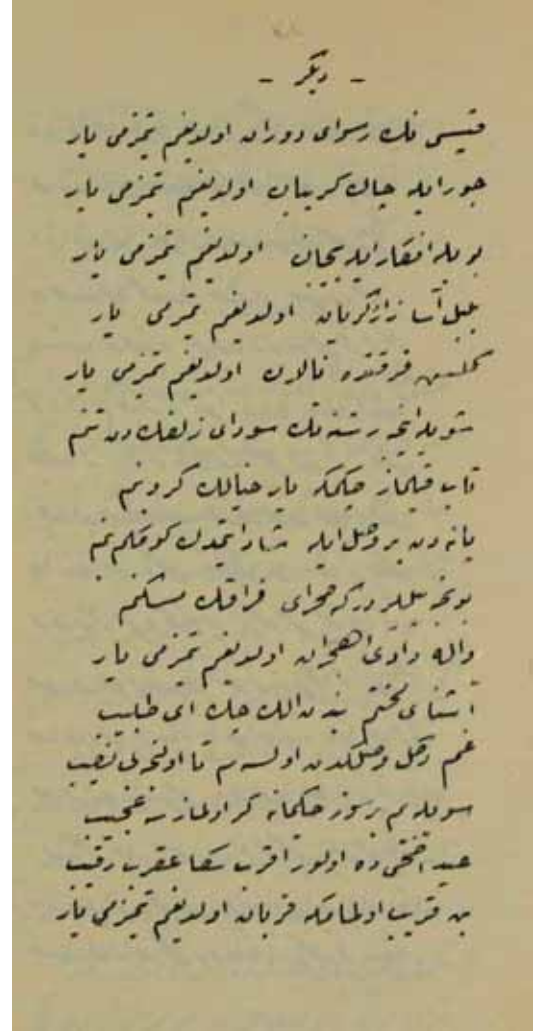 - ديكر -
قيس تك رسواى دوران اولديغم يتمزمى يار
جور ايله چاك كريبان اولديغم يتمزمى يار
بويله افكار ايله بيجان اولديغم يتمزمى يار
بلبل آسا زار و كريان اولديغم يتمزمى يار
كلسن فرقتده نالان اولديغم يتمزمى يار
شويله اينجه رشته تك سوداى زلفكدن تنم
تاب قيلماز چكمكه بار خيالك كردنم
يانه دن بر وصل ايله شاد ايتمدك كوكلم نم
بونجه ييللردركه صحراى فراقك مسكنم
واله وادئ هجران اولديغم يتمزمى يار
آشناى لختم بندن الك چك اى طبيب
غم دكل وصلكدن اولسه م تا اولنجه بى نصيب
سويله يم بر سوز حكيمانه كر اولماز سه عجيب
عيد اضحى ده اولور اقرب سكا عقرب رقيب
بن قريب اولمامغه قربان اولديغم يتمزمى يار